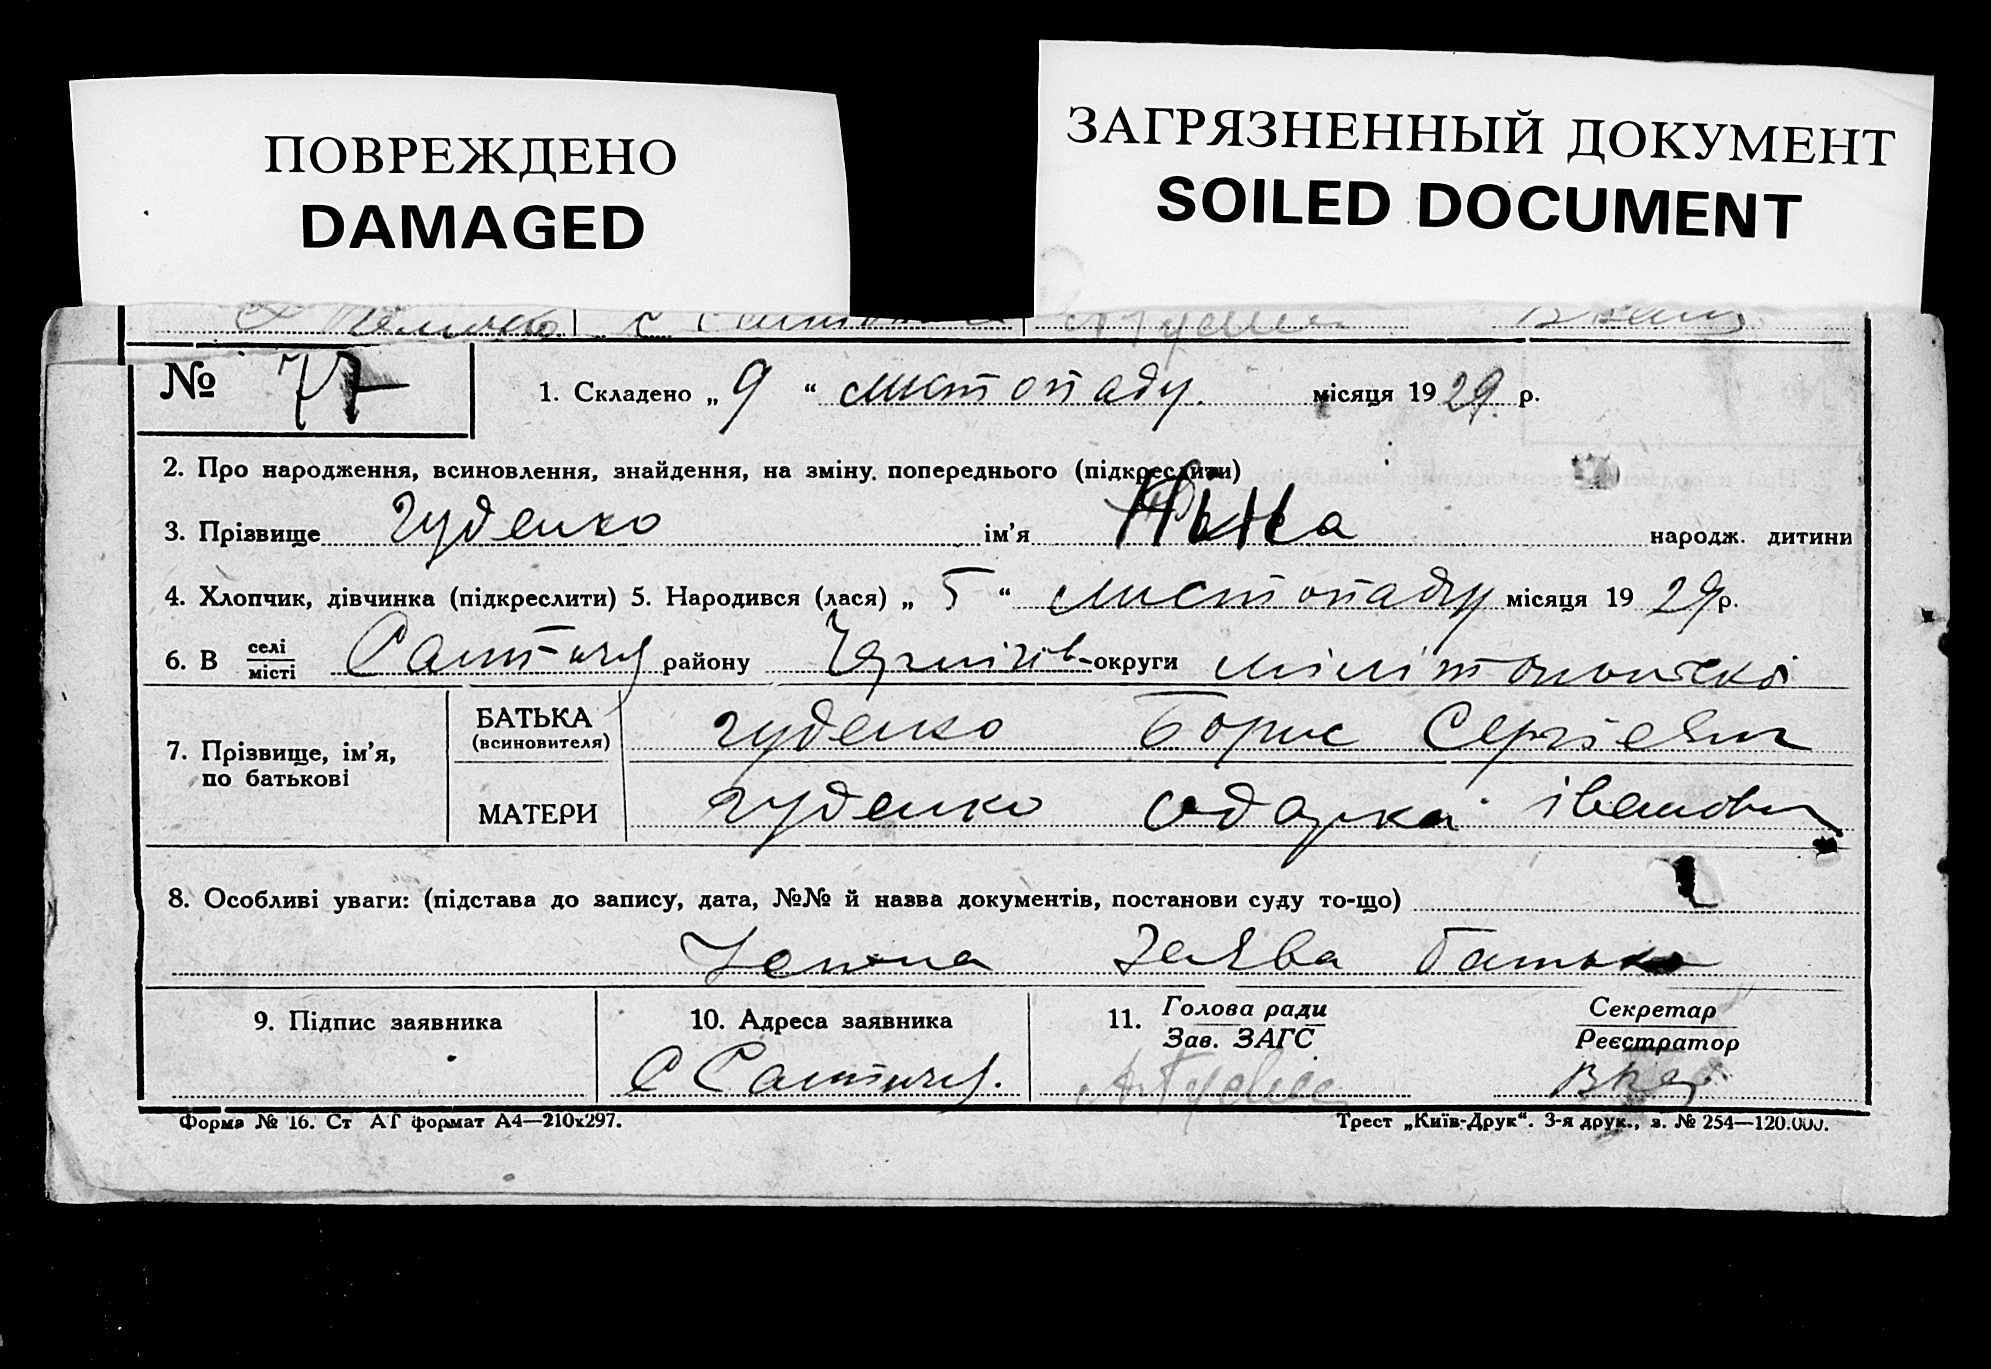 ПОВРЕЖДЕНО
DAMAGED
ЗАГРЯЗНЕННЫЙ ДОКУМЕНТ
SOILED DOCUMENT
№ 77
1. Складено „ 9 “ листопаду місяця 1929 р.
2. Про народження, всиновлення, знайдення, на зміну попереднього (підкреслити)
3. Прізвище Гуденко ім’я Ніна народж. дитини
4. Хлопчик, дівчинка (підкреслити) 5. Народився (лася) „ 5 “ листопаду місяця 1929 р.
6. В селі місті району Чернігів- округи
7. Прізвище, ім’я, по батькові
БАТЬКА (всиновителя) Гуденко Борис Сергіевич
МАТЕРИ Гуденко Одарка Івановн
8. Особливі уваги: (підстава до запису, дата, №№ й назва документів, постанови суду то-що)
заява батька
9. Підпис заявника
10. Адреса заявника
С
11. Голова ради Зав. ЗАГС
Секретар Реєстратор
Форма № 16. Ст АГ формат А4—210х297.
Трест „Київ-Друк“. 3-я друк., з. № 254—120.000.